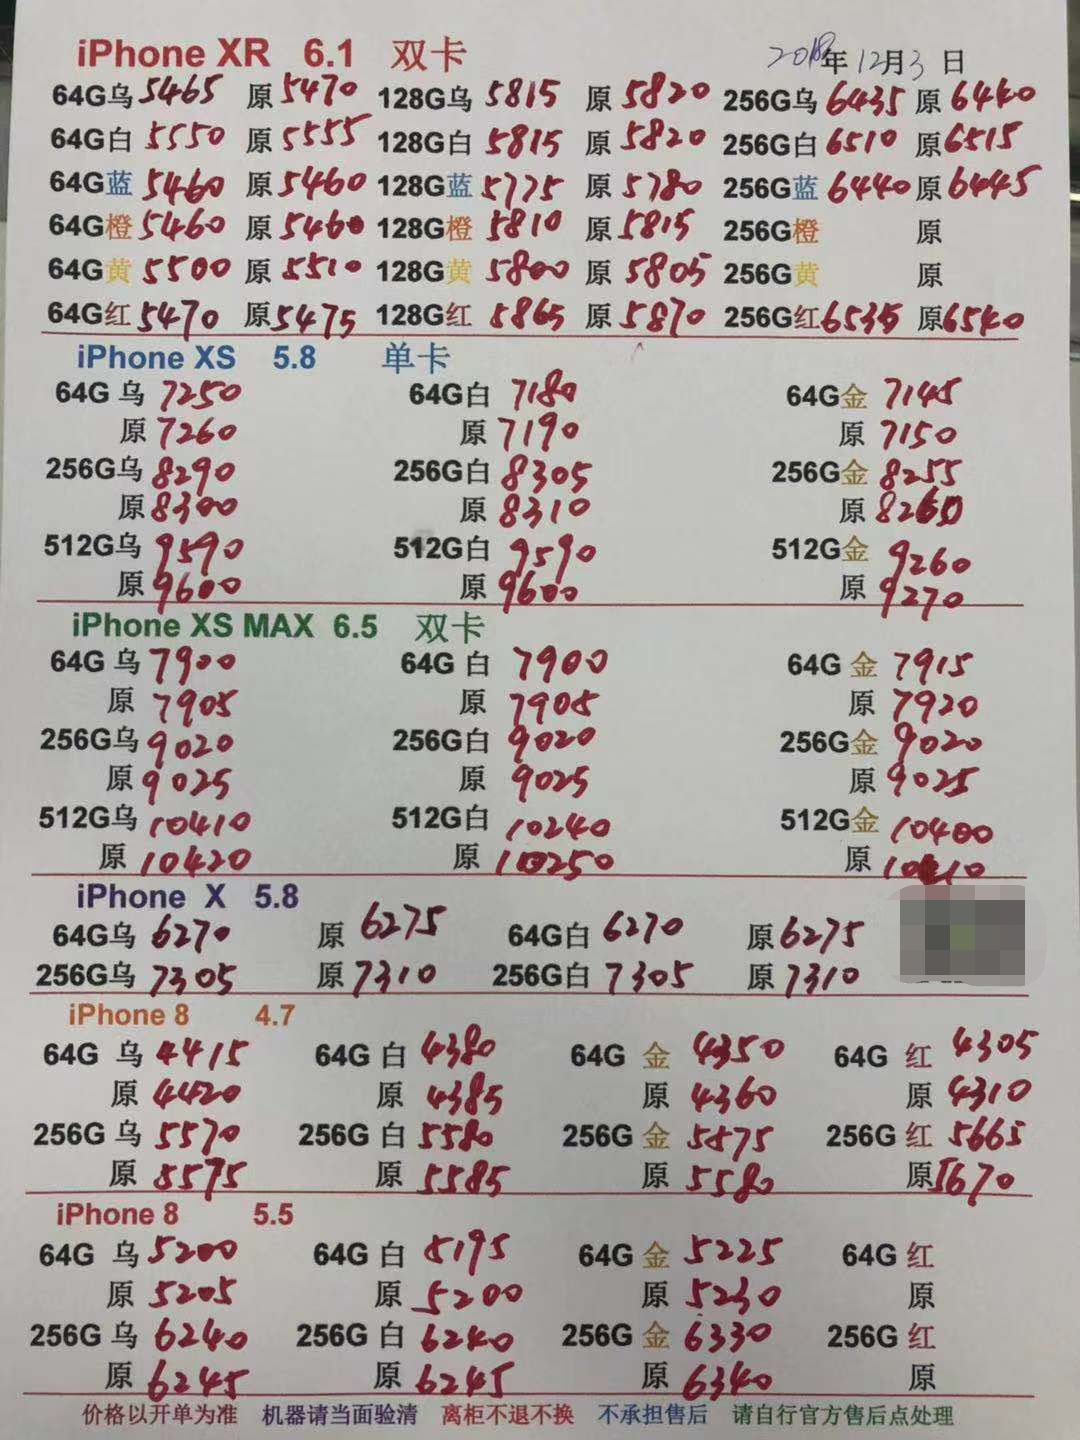 iPhone XR 6.1 双卡 2018年12月3日
64G乌 5465 原 5470 128G乌 5815 原 5820 256G乌 6435 原 6440
64G白 5550 原 5555 128G白 5815 原 5820 256G白 6510 原 6515
64G蓝 5460 原 5460 128G蓝 5775 原 5780 256G蓝 6440 原 6445
64G橙 5460 原 5460 128G橙 5810 原 5815 256G橙 原
64G黄 5500 原 5510 128G黄 5800 原 5805 256G黄 原
64G红 5470 原 5475 128G红 5865 原 5870 256G红 6535 原 6540
iPhone XS 5.8 单卡
64G 乌 7250 64G白 7180 64G金 7145
原 7260 原 7190 原 7150
256G乌 8290 256G白 8305 256G金 8255
原 8300 原 8310 原 8260
512G乌 9590 512G白 9590 512G金 9260
原 9600 原 9600 原 9270
iPhone XS MAX 6.5 双卡
64G 乌 7900 64G 白 7900 64G 金 7915
原 7905 原 7905 原 7920
256G乌 9020 256G白 9020 256G金 9020
原 9025 原 9025 原 9025
512G乌 10410 512G白 10240 512G金 10400
原 10420 原 10250 原 10410
iPhone X 5.8
64G乌 6270 原 6275 64G白 6270 原 6275
256G乌 7305 原 7310 256G白 7305 原 7310
iPhone 8 4.7
64G 乌 4415 64G 白 4380 64G 金 4350 64G 红 4305
原 4420 原 4385 原 4360 原 4310
256G 乌 5570 256G 白 5580 256G 金 5575 256G 红 5665
原 5575 原 5585 原 5580 原 5670
iPhone 8 5.5
64G 乌 5200 64G 白 5195 64G 金 5225 64G 红
原 5205 原 5200 原 5230 原
256G 乌 6240 256G 白 6240 256G 金 6330 256G 红
原 6245 原 6245 原 6340 原
价格以开单为准 机器请当面验清 离柜不退不换 不承担售后 请自行官方售后点处理